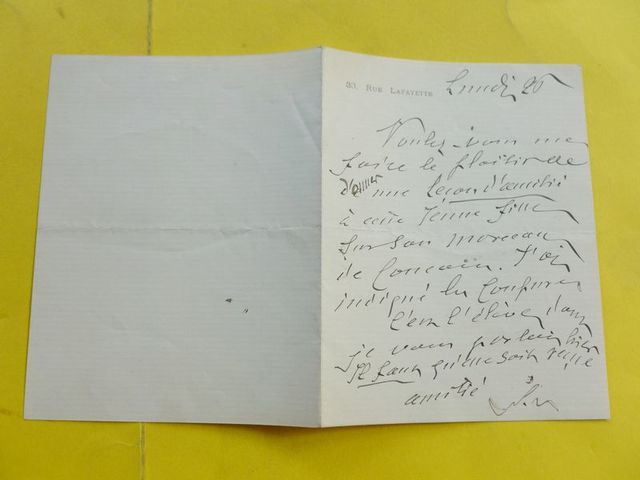 33, Rue Lafayette
Lundi 26
Voulez-vous me
faire le plaisir de
donner
une leçon d'amitié
à cette jeune fille
sur son morceau
de Concours. J'ai
indiqué les coupures
C'est l'élève dont
je vous parlais hier
Il faut qu'elle soit reçue
amitié